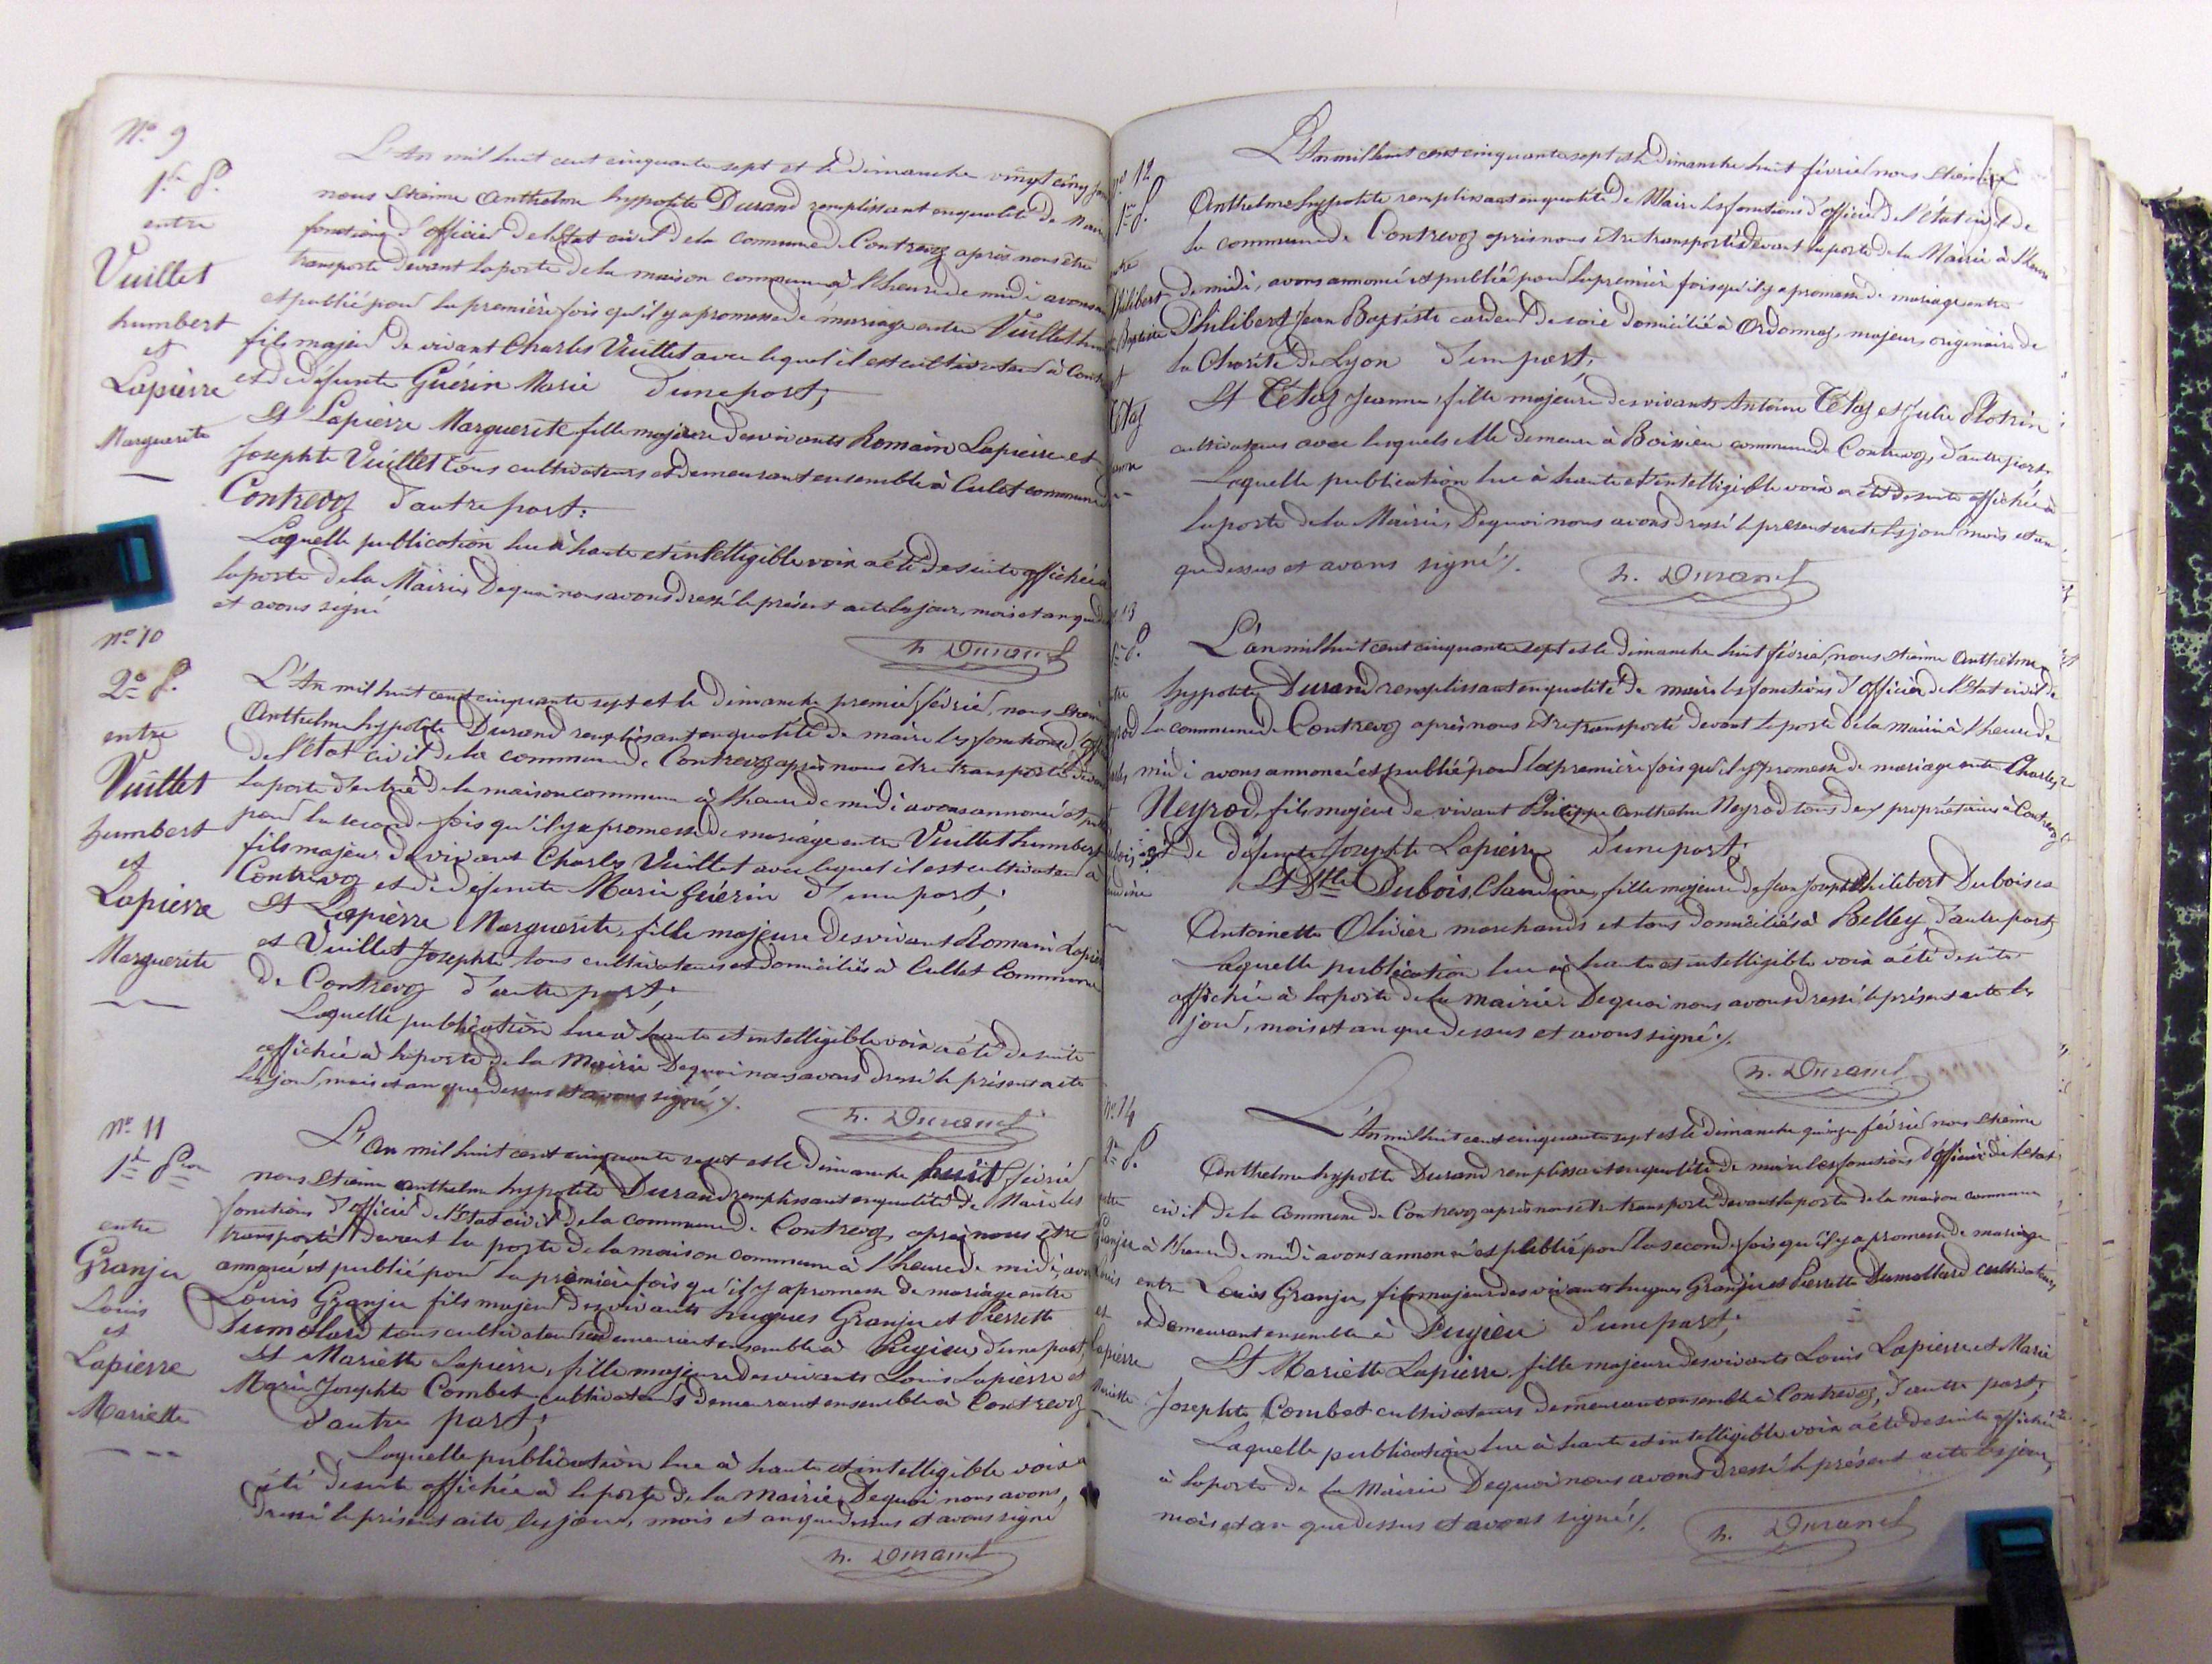 N.o 9
1.re P.
entre
Vuillet
humbert
et
Lapierre
Marguerite
L'An mil huit cent cinquante sept et le dimanche vingt cinq
nous Etienne Anthelme hyppolite Durand remplissant en qualité de Maire
fonctions d'officier de l'Etat civil de la commune de Contrevoz après nous être
transporté devant la porte de la maison commune à l'heure de midi avons
et publié pour la première fois qu'il y a promesse de mariage entre Vuillet
fils majeur de vivant Charles Vuillet avec lequel il est cultivateur à
et de défunte Guérin Marie d'une part;
Et Lapierre Marguerite fille majeure des vivants Romain Lapierre et
Josephte Vuillet tous cultivateurs et demeurant ensemble à Culet commune
Contrevoz d'autre part:
Laquelle publication lue à haute et intelligible voix a été de suite affichée à
la porte de la Mairie, De quoi nous avons dressé le présent acte les jour, mois et an que
et avons signé
h. Durand
n.o 10
2.e P.
entre
Vuillet
humbert
et
Lapierre
Marguerite
L'An mil huit cent cinquante sept et le dimanche premier février, nous
Anthelme hypolite Durand remplissant en qualité de maire les fonctions
de l'Etat civil de la commune de Contrevoz après nous être transporté
la porte d'entrée de la maison commune à l'heure de midi avons annoncé et
pour la seconde fois qu'il y a promesse de mariage entre Vuillet humbert
fils majeur de vivant Charles Vuillet avec lequel il est cultivateur à
Contrevoz et de défunte Marie Guérin d'une part;
Et Lapierre Marguerite, fille majeure des vivant Romain
et Vuillet Josephte tous cultivateurs et domiciliés à Cullet Commune
de Contrevoz d'autre part;
Laquelle publication lue à haute et intelligible voix a été de suite
affichée à la porte de la Mairie De quoi nous avons dressé le présent acte
les jour, mois et an que dessus et avons signé ./.
h. Durand
n.o 11
1.re P.on
entre
Granju
Louis
et
Lapierre
Mariette
L'an mil huit cent cinquante sept et le dimanche huit février
nous Etienne Anthelme hypolite Durand remplissant en qualité de Maire les
fonctions d'officier de l'Etat civil de la commune de Contrevoz, après nous être
transporté devant la porte de la maison commune à l'heure de midi, avons
annoncé et publié pour la première fois qu'il y a promesse de mariage entre
Louis Granju fils majeur des vivants hugues Granju et Pierrette
Dumolard tous cultivateurs demeurant ensemble à Pugieu d'une part,
Et Mariette Lapierre, fille majeure des vivants Louis Lapierre et
Marie Josephte Combet cultivateurs demeurant ensemble à Contrevoz
d'autre part;
Laquelle publication lue à haute et intelligible voix a
été de suite affichée à la porte de la Mairie, De quoi nous avons
dressé le présent acte les jour, mois et an que dessus et avons signé
h. Durand
n.o 12
1.re P.
Philibert
Baptiste
et
Tétaz
L'An mil huit cent cinquante sept et le dimanche huit février nous Etienne
Anthelme hyppolite remplissant en qualité de Maire les fonctions d'officier de l'état civil de
la commune de Contrevoz après nous être transporté devant la porte de la Mairie à l'heure
de midi, avons annoncé et publié pour la première fois qu'il y a promesse de mariage entre
Philibert Jean Baptiste cardeur de soie domicilié à Ordonnaz, majeur, originaire de
la Charité de Lyon d'une part,
Et Tétaz Jeanne, fille majeure des vivants Antoine Tétaz et Julie Plotrin
cultivateurs avec lesquels elle demeure à Boissieu commune de Contrevoz, d'autre part,
Laquelle publication lue à haute et intelligible voix a été de suite affichée à
la porte de la Mairie, De quoi nous avons dressé le présent acte les jour mois et an
que dessus et avons signé ./.
h. Durand
13
1.re P.
L'an mil huit cent cinquante sept et le dimanche huit février, nous Etienne Anthelme
hypolite Durand remplissant en qualité de maire les fonctions d'officier de l'Etat civil de
la commune de Contrevoz après nous être transporté devant la porte de la mairie à l'heure de
midi avons annoncé et publié pour la première fois qu'il y a promesse de mariage entre Charles
Neyrod, fils majeur de vivant Philippe Anthelme Neyrod tous deux propriétaires à Contrevoz
et de défunte Josephte Lapierre d'une part;
Et D.lle Dubois Claudine, fille majeure de Jean Joseph Philibert Dubois et
Antoinette Olivier marchands et tous domiciliés à Belley, d'autre part,
Laquelle publication lue à haute et intelligible voix a été de suite
affichée à la porte de la mairie. De quoi nous avons dressé le présent acte les
jour, mois et an que dessus et avons signé ./.
h. Durand
n.o 14
2.e P.
entre
Granju
Louis
et
Lapierre
Mariette
L'An mil huit cent cinquante sept et le dimanche quinze février nous Etienne
Anthelme hypolte Durand remplissant en qualité de maire les fonctions d'officier de l'état
civil de la Commune de Contrevoz après nous être transporté devant la porte de la maison commune
à l'heure de midi avons annoncé et publié pour la seconde fois qu'il y a promesse de mariage
entre Louis Granju, fils majeur des vivants hugues Granju et Pierrette Dumollard cultivateurs
et demeurant ensemble à Pugieu d'une part;
Et Mariette Lapierre fille majeure des vivants Louis Lapierre et Marie
Josephte Combet cultivateurs demeurant ensemble à Contrevoz, d'autre part;
Laquelle publication lue à haute et intelligible voix a été de suite affichée
à la porte de la Mairie De quoi nous avons dressé le présent acte les jour,
mois et an que dessus et avons signé ./.
h. Durand